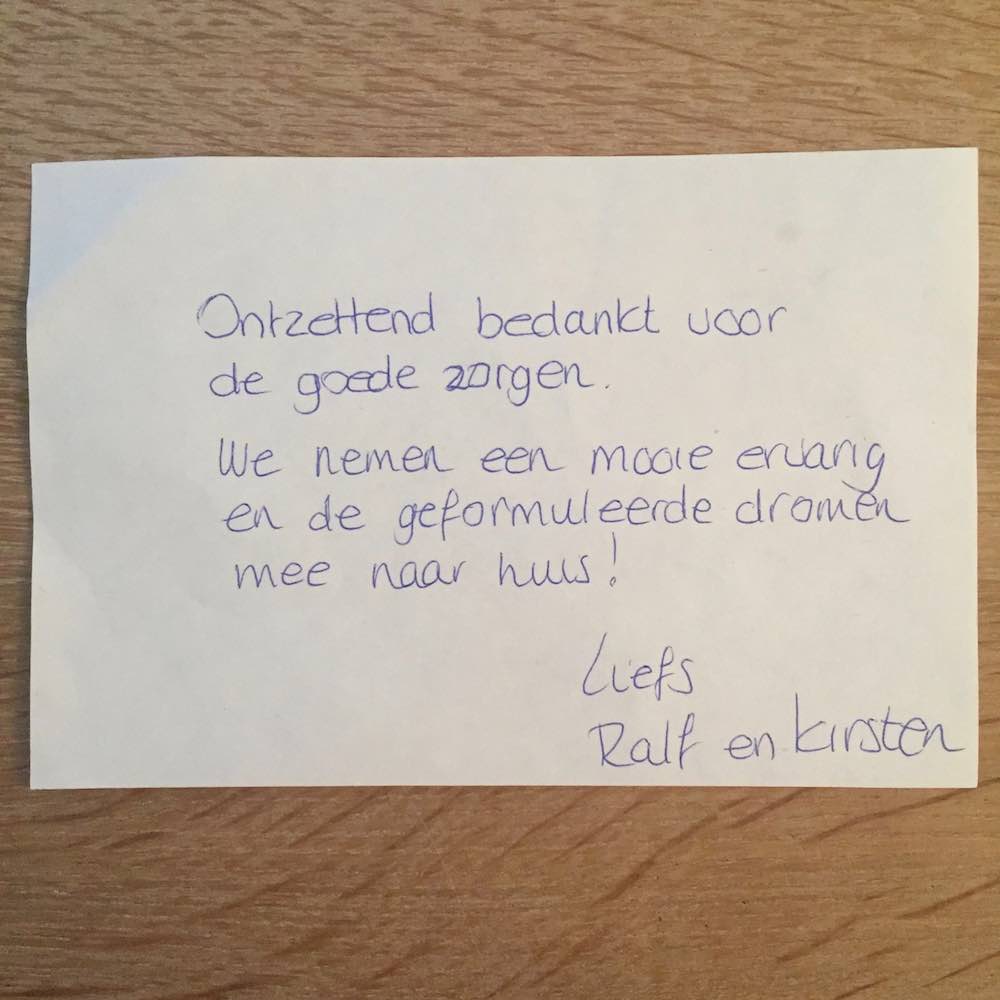 Ontzettend bedankt voor
de goede zorgen.
We nemen een mooie ervarig
en de geformuleerde dromen
mee naar huis!
Liefs
Ralf en Kirsten